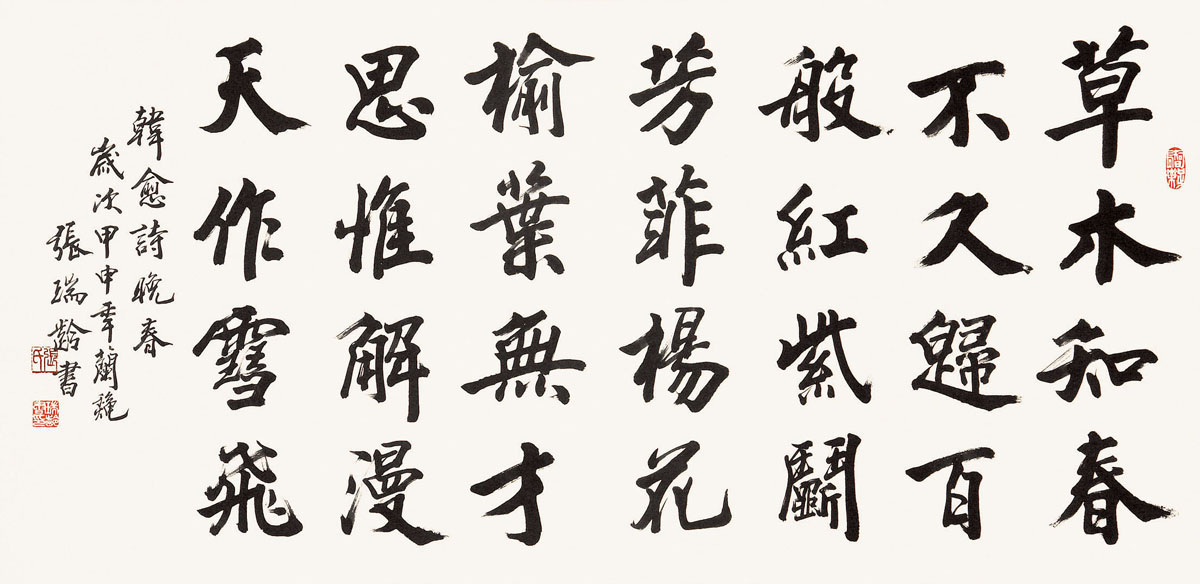 草木知春
不久歸百
般紅紫鬭
芳菲楊花
榆葉無才
思惟解漫
天作雪飛
韓愈詩晚春
歲次甲申年蘭
張瑞齡書